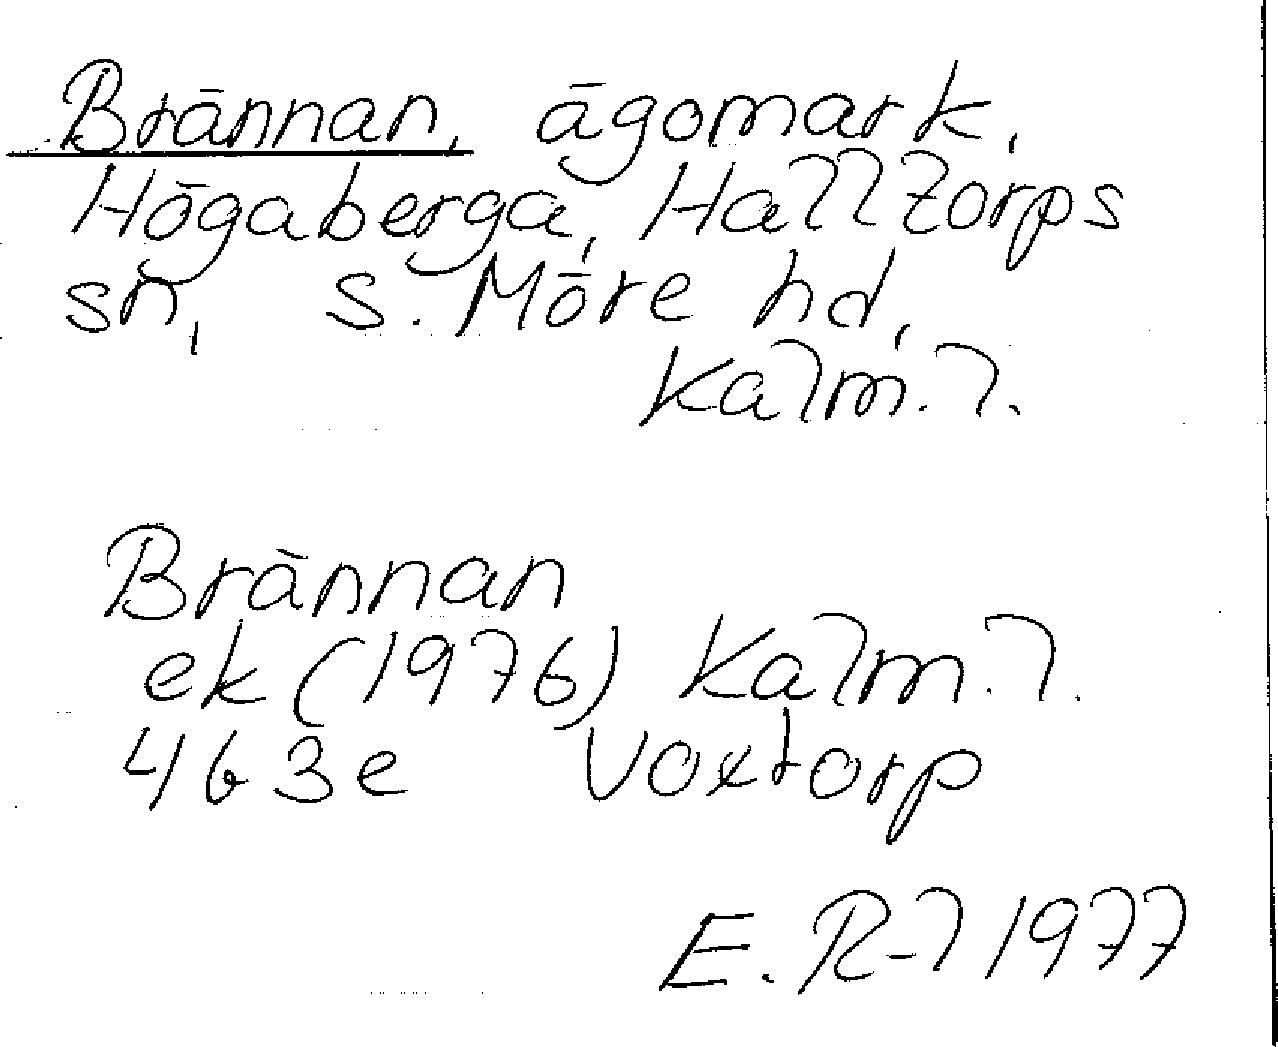 Brännan, ägomark,
Högaberga, Halltorps
sn, S. Möre hd,
Kalm. l.
Brännan
ek (1976) Kalm. l.
4G3e Voxtorp
E. R-l 1977